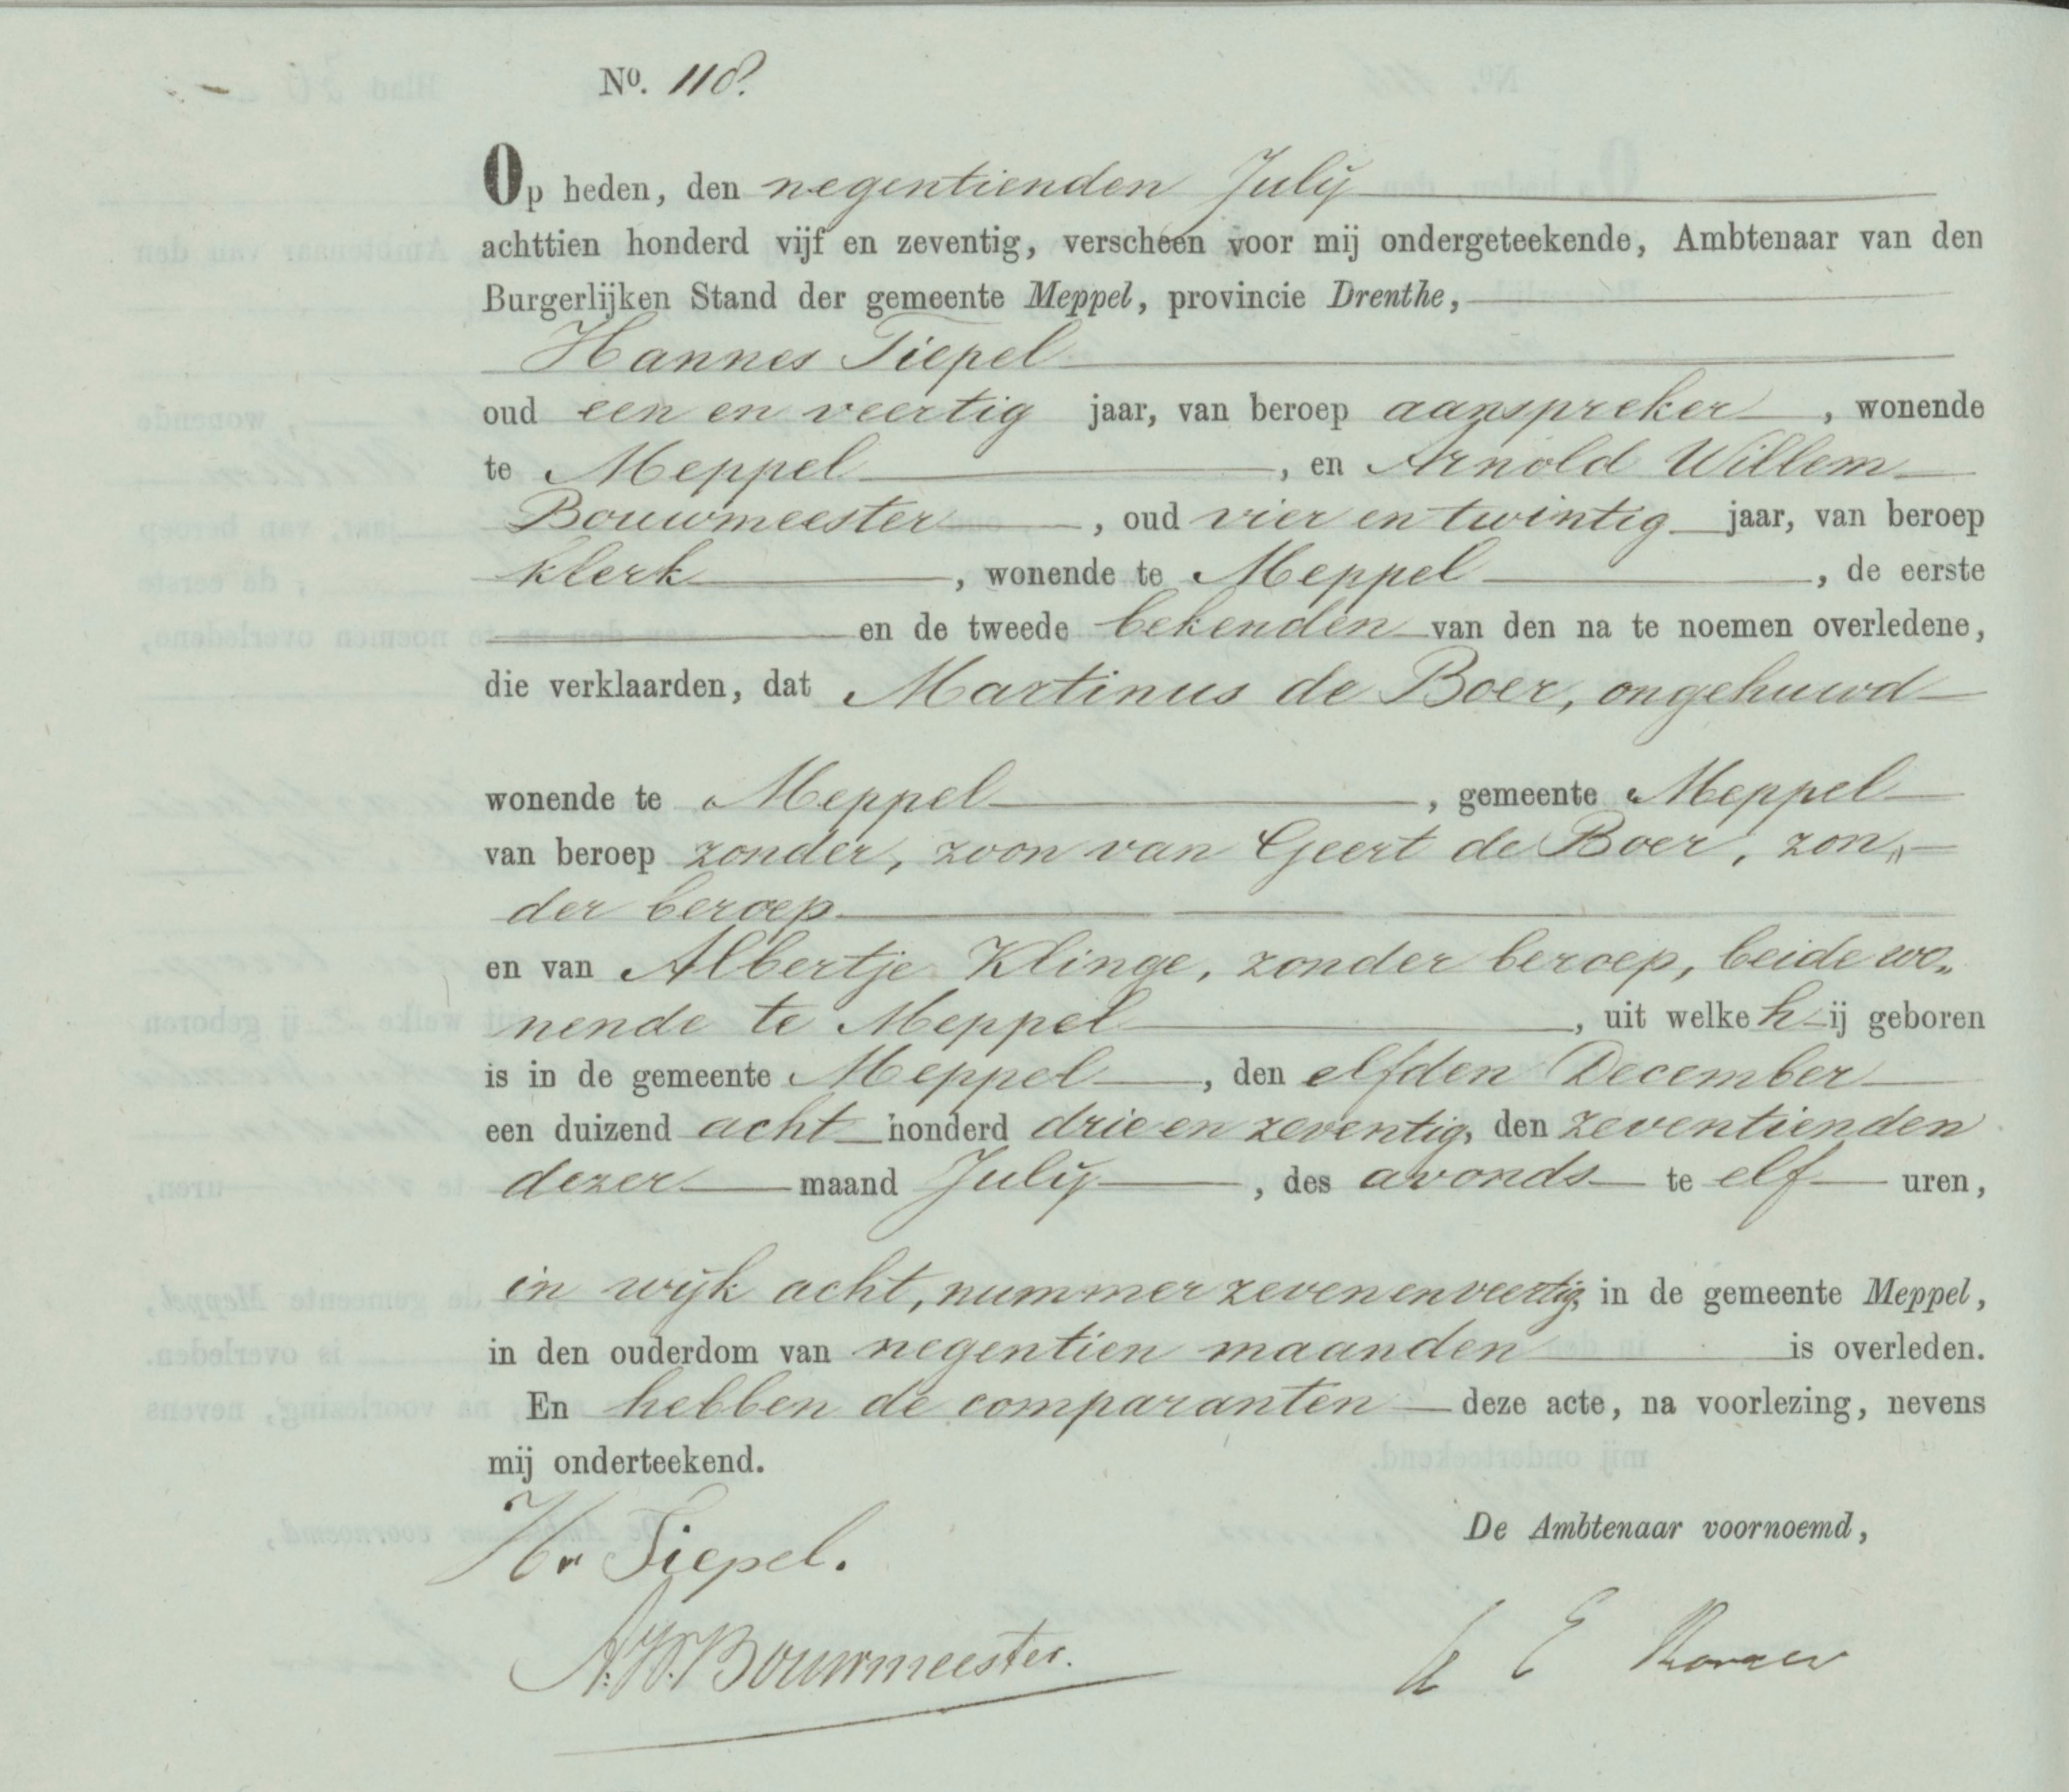 No. 118.
Op heden, den negentienden July
achttien honderd vijf en zeventig, verscheen voor mij ondergeteekende, Ambtenaar van den
Burgerlijken Stand der gemeente Meppel, provincie Drenthe,
Hannes Tiepel
oud een en veertig jaar, van beroep aanspreker, wonende
te Meppel, en Arnold Willem
Bouwmeester, oud vier en twintig jaar, van beroep
klerk, wonende te Meppel, de eerste
en de tweede bekenden van den na te noemen overledene,
die verklaarden, dat Martinus de Boer, ongehuwd
wonende te Meppel, gemeente Meppel
van beroep zonder, zoon van Geert de Boer, zon„
der beroep
en van Albertje Klinge, zonder beroep, beide wo„
nende te Meppel, uit welke hij geboren
is in de gemeente Meppel, den elfden December
een duizend acht honderd drie en zeventig, den zeventienden
dezer maand July, des avonds te elf uren,
in wijk acht, nummer zeven en veertig, in de gemeente Meppel,
in den ouderdom van negentien maanden is overleden.
En hebben de comparanten deze acte, na voorlezing, nevens
mij onderteekend.
De Ambtenaar voornoemd,
Hs Tiepel.
A.W. Bouwmeester.